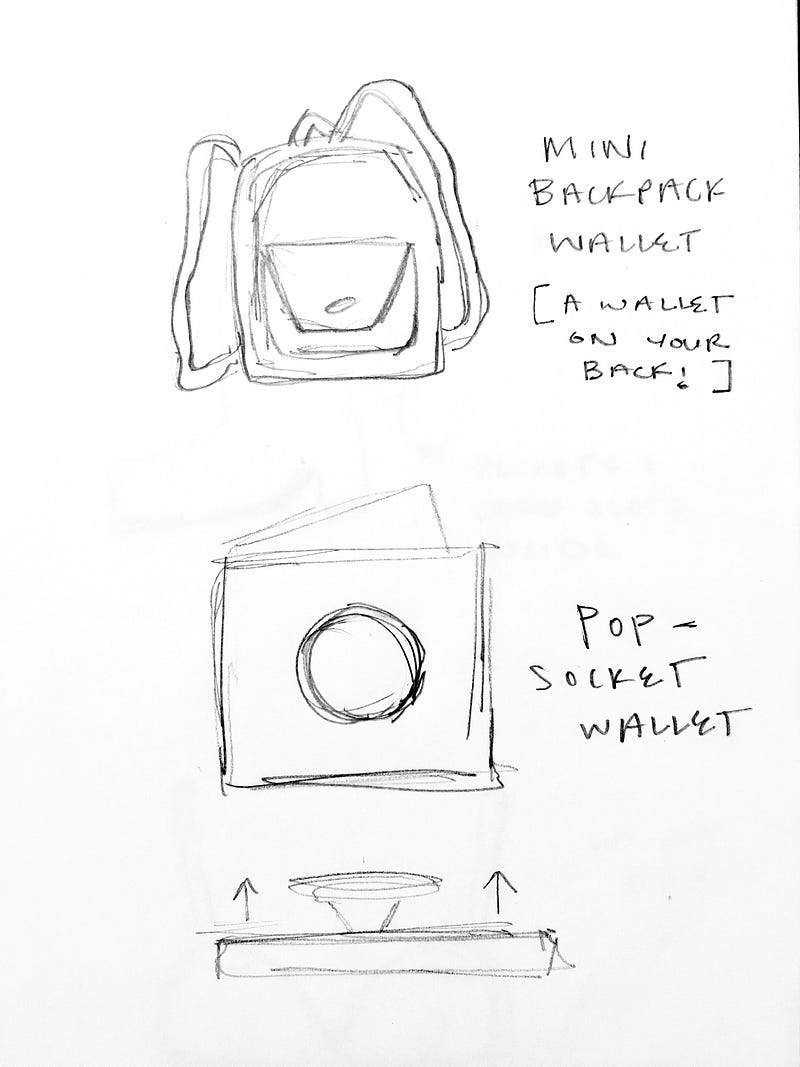 MINI
BACKPACK
WALLET
[A WALLET
ON YOUR
BACK!]
POP-
SOCKET
WALLET